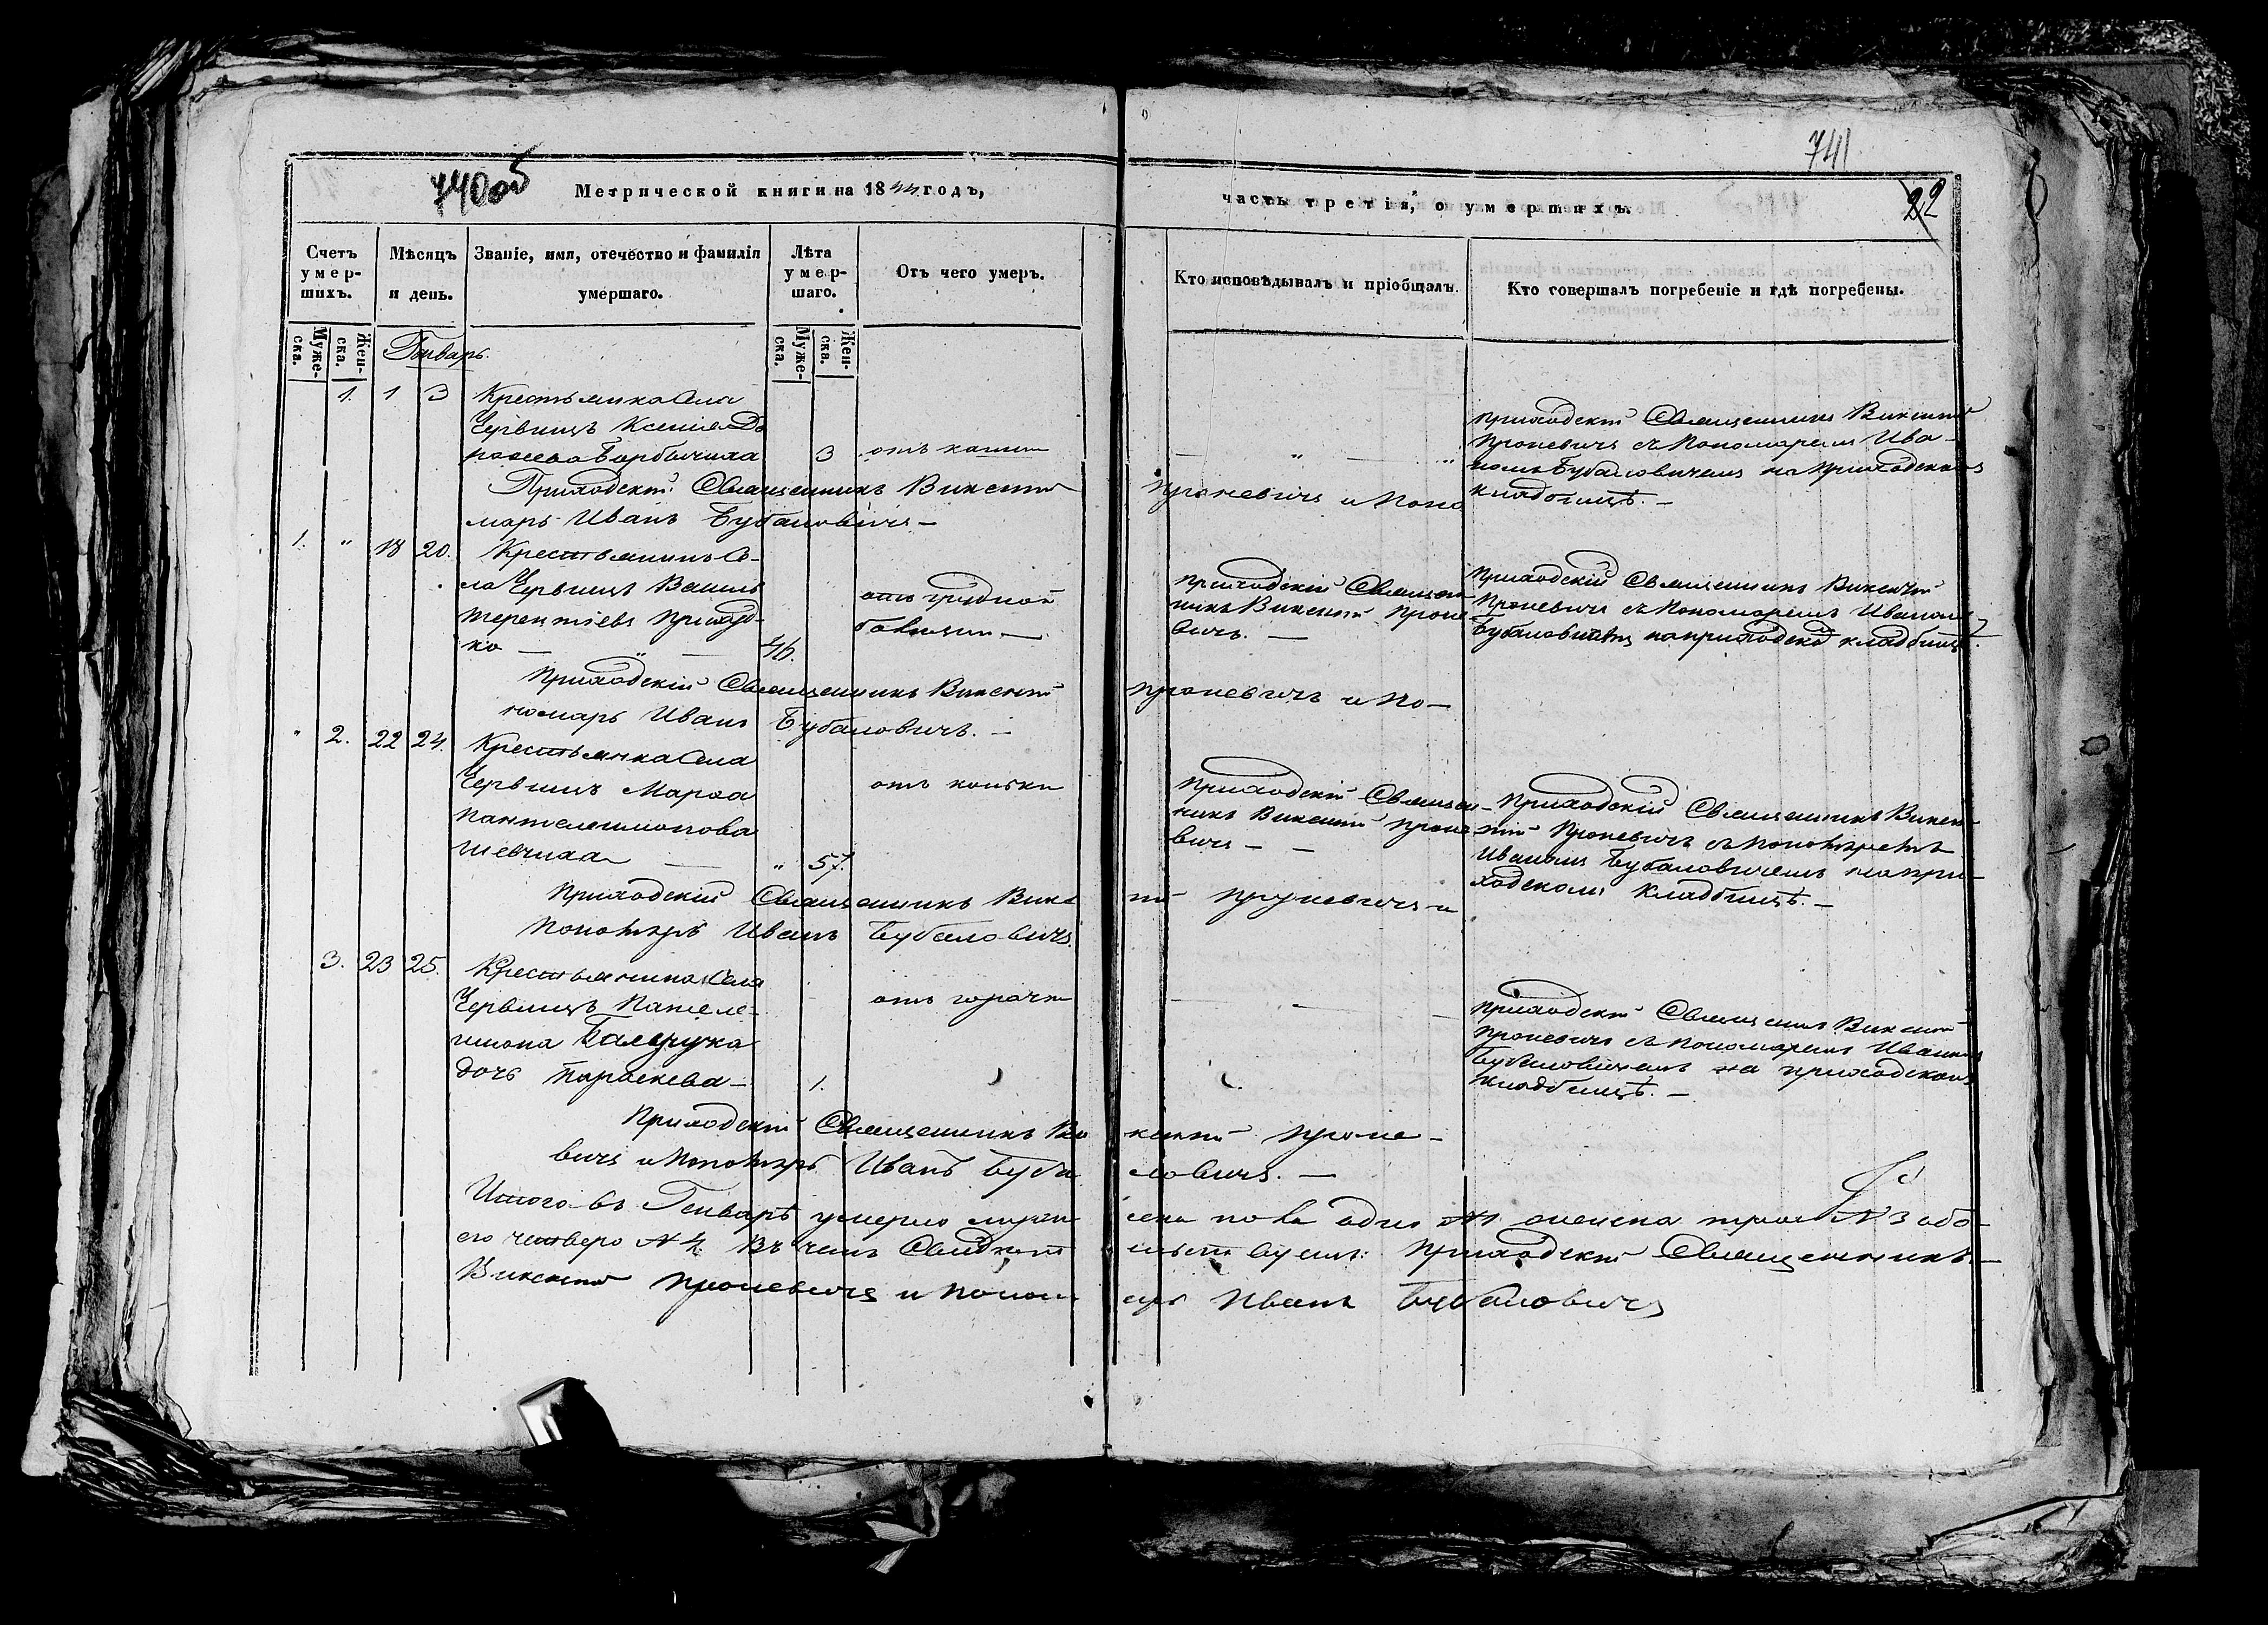 740об
741
22
Метрической книги на 1844 годъ,
часть третія, о умершихъ.
Счетъ умер-шихъ.
Мѣсяцъ и день.
Званіе, имя, отечество и фамилія умершаго.
Лѣта умер-шаго.
Отъ чего умеръ.
Кто исповѣдывалъ и пріобщалъ.
Кто совершалъ погребеніе и гдѣ погребены.
Муже-ска.
Жен-ска.
Муже-ска.
Жен-ска.
Генварь.
1. 1 3
Крестьянка Села
Червищъ Ксенія До
рофеева
3
отъ кашли
Приходскій Священникъ Викентій
Проневичъ съ Пономаремъ Ива-
номъ Бубаловичемъ на приходскомъ
кладбищѣ. —
Приходскій Священникъ Викентій
Проневичъ и Поно
марь Иванъ Бубаловичъ —
1. " 18 20.
Крестьянинъ Се-
ла Червищъ Василь
Терентіевъ
ко — " — 46.
отъ грудной
болезни —
приходскій Священ
никъ Викентій Проне
вичъ. —
Приходскій Священникъ Викентій
Проневичъ съ Пономаремъ Иваномъ
Бубаловичемъ на приходском кладбищѣ.
Приходскій Священникъ Викентій
Проневичъ и По—
номарь Иванъ Бубаловичъ. —
" 2. 22 24.
Крестьянка Села
Червищъ Марфа
Пантелеимонова
Шевчиха — " 57.
отъ колѣки
Приходскій Священ-
никъ Викентій Проне
вичъ — —
Приходскій Священникъ Викен-
тій Проневичъ съ Пономаремъ
Иваномъ Бубаловичемъ на при-
ходскомъ Кладбищѣ. —
Приходскій Священникъ Вике
тій Проневичъ и
Пономарь Иванъ Бубаловичъ.
3. 23 25.
Крестьянина Села
Червищъ Пантеле-
имона
дочь Параскева — 1.
отъ горячки
Приходскій Священникъ Викентій
Проневичъ съ Пономаремъ Иваномъ
Бубаловичемъ на приходскомъ
кладбищѣ. —
Приходскій Священникъ Ви
кентій Проне-
вичъ и Пономарь Иванъ Буба
ловичъ. —
Итого въ Генварѣ умерло мужес
скаго пола одно №1 женска трое №3 обо-
его четверо №4. Въ чемъ Свидѣт
ельствуемъ: Приходскій Священникъ —
Викентій Проневичъ и Поном
арь Иванъ Бубаловичъ